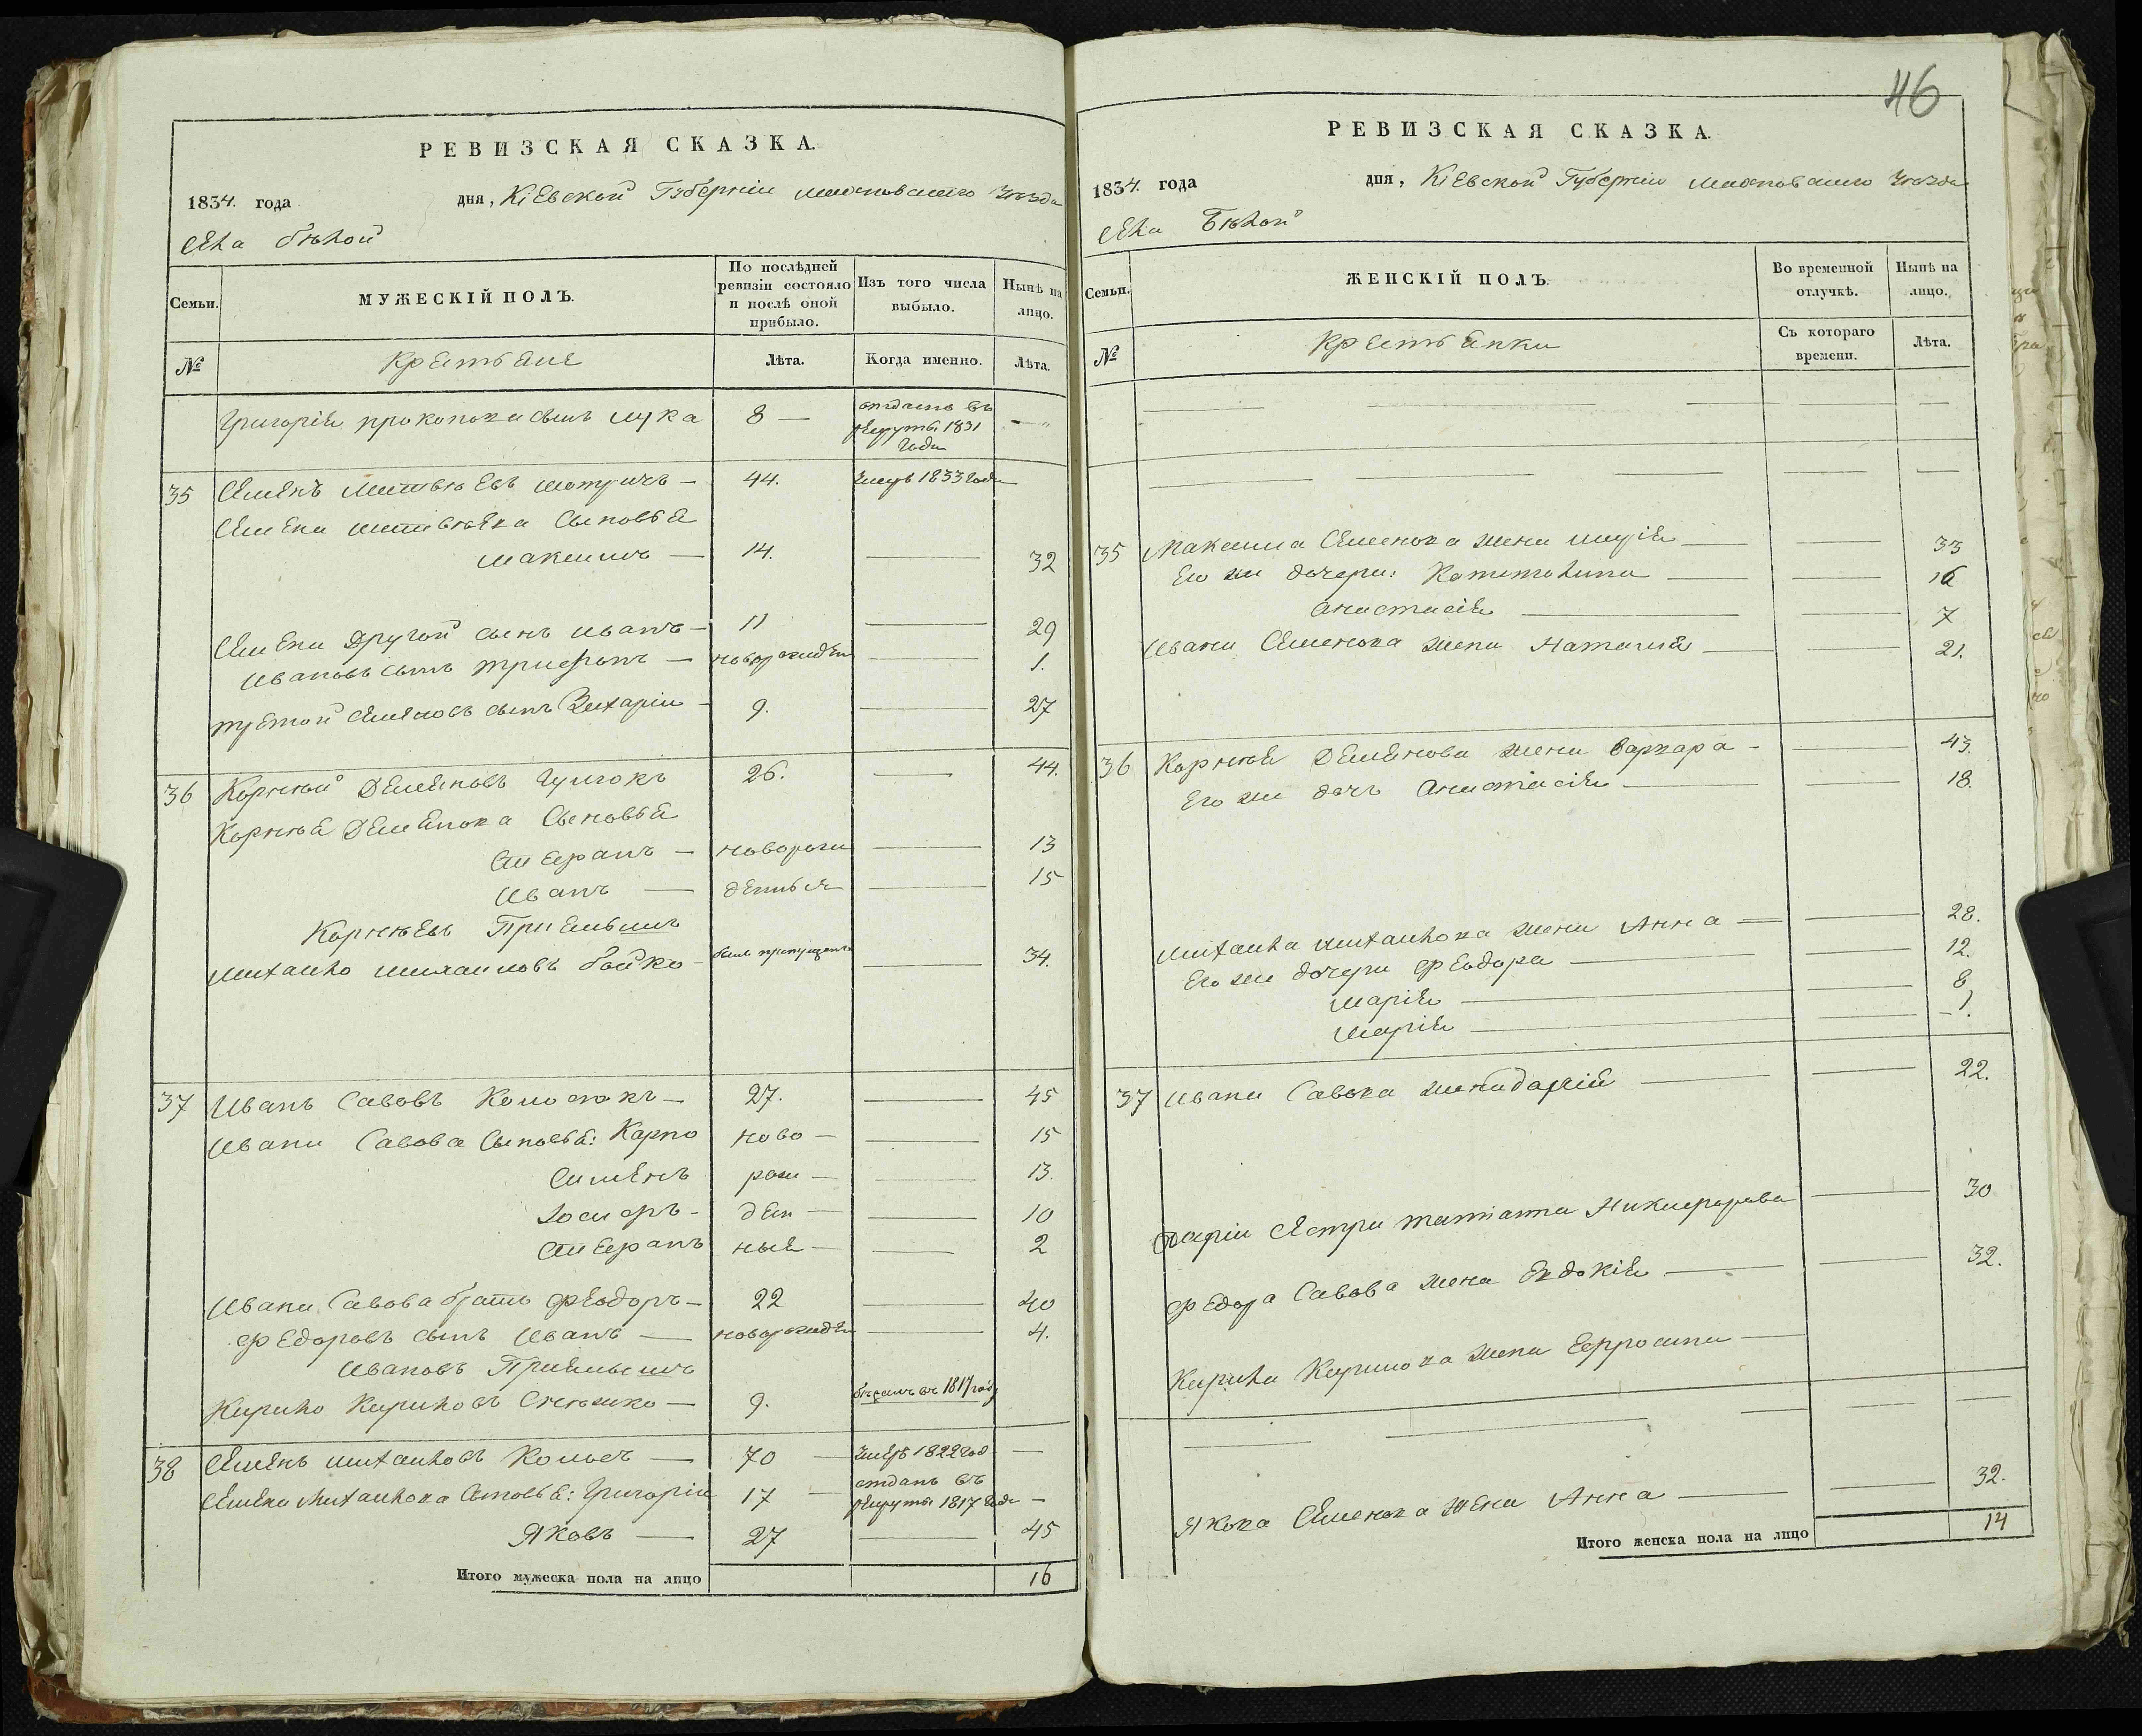 46
РЕВИЗСКАЯ СКАЗКА.
1834. года дня, Кіевской Губерніи Уезда
села белой
Семьи.
МУЖЕСКІЙ ПОЛЪ.
По послѣдней ревизіи состояло и послѣ оной прибыло.
Изъ того числа выбыло.
Нынѣ на лицо.
№
Крестьяне
Лѣта.
Когда именно.
Лѣта.
Григорія прокопова сынъ лука 8 — отданъ въ рекруты 1831 года —
35 Семенъ Матвѣевъ — 44. умръ 1833 года
Семена матвѣева Сыновья
максимъ — 14. — 32
Семена другой сынъ иванъ — 11 — 29
ивановъ сынъ трифонъ — новорожден — 1.
третой Семеновъ сынъ Захарій — 9. — 27
36 Корнѣй Деменовъ 26. — 44.
Корнѣя Деменова Сыновья
Стефанъ — новорож — 13
Иванъ — денныя — 15
Корнѣевъ Приемышъ
михайло бойко — былъ пропущенъ — 34.
37 Иванъ Савовъ — 27. — 45
Ивана Савова Сыновья: Карпо ново — — 15
Сименъ рож — — 13.
Іосифъ — ден — — 10
Стефанъ ныя — — 2
Ивана Савова братъ Феодоръ — 22 — 40
Федоровъ сынъ Иванъ — новорожден — 4.
Ивановъ Приемышъ
Кирило Кириловъ — 9. бежалъ въ 1817 году
38 Семенъ михайловъ — 70 — умеръ 1822 год —
Семена Михайлова Сыновья: Григорій 17 — отданъ въ рекруты 1817 года —
Яковъ — 27 — 45
Итого мужеска пола на лицо 16
РЕВИЗСКАЯ СКАЗКА.
1834. года дня, Кіевской Губерніи Уезда
села Бѣлой
Семьи.
ЖЕНСКІЙ ПОЛЪ.
Во временной отлучкѣ.
Нынѣ на лицо.
№
Крестьянки
Съ котораго времени.
Лѣта.
35 Максима Семенова жена марія — — 33
Его же дочери: — — 16
Анастасія — — 7
Ивана Семенова жена Наталия — — 21.
36 Корнѣя Деменова жена варвара — — 43.
Его же дочь Анастасія — — 18.
михайла михайлова жена Анна — — 28.
Его же дочери феодора — — 12.
марія — — 8
марія — — 1.
37 Ивана Савова жена дарія — — 22.
дарии сестра татіанна Никифорова — 30
федора Савова жена Евдокія — — 32.
Кирила Кирилова жена Ефросина —
Якова Семенова жена Анна — — 32.
Итого женска пола на лицо 14